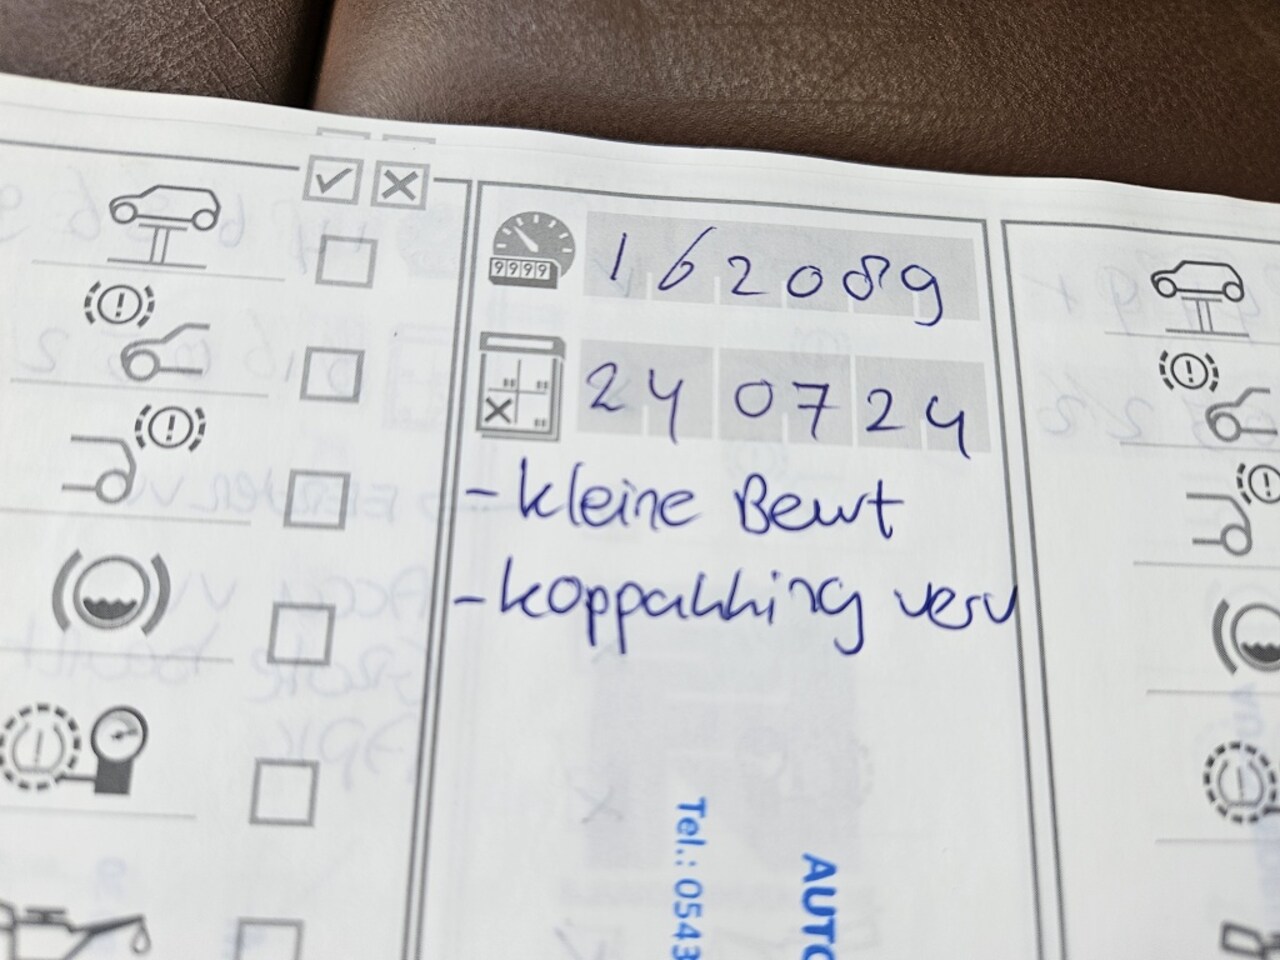 9999
162089
240724
- kleine Beurt
- koppakking verv
Tel.: 0543
AUTO